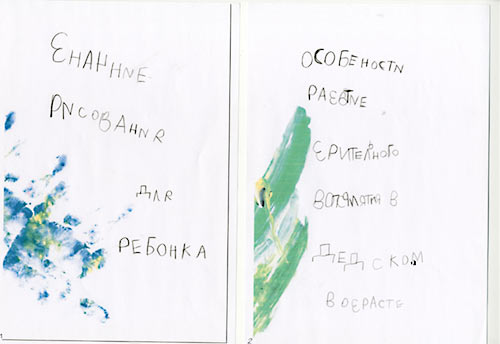 ЕНАЧНИЕ
РИСОВАНИЯ
ДЛЯ
РЕБОНКА
1
ОСОБЕНОСТИ
РАЕВТИЕ
ЕРИТЕЛНОГО
В
ДЕДСКОМ
ВОЕРАСТЕ
2